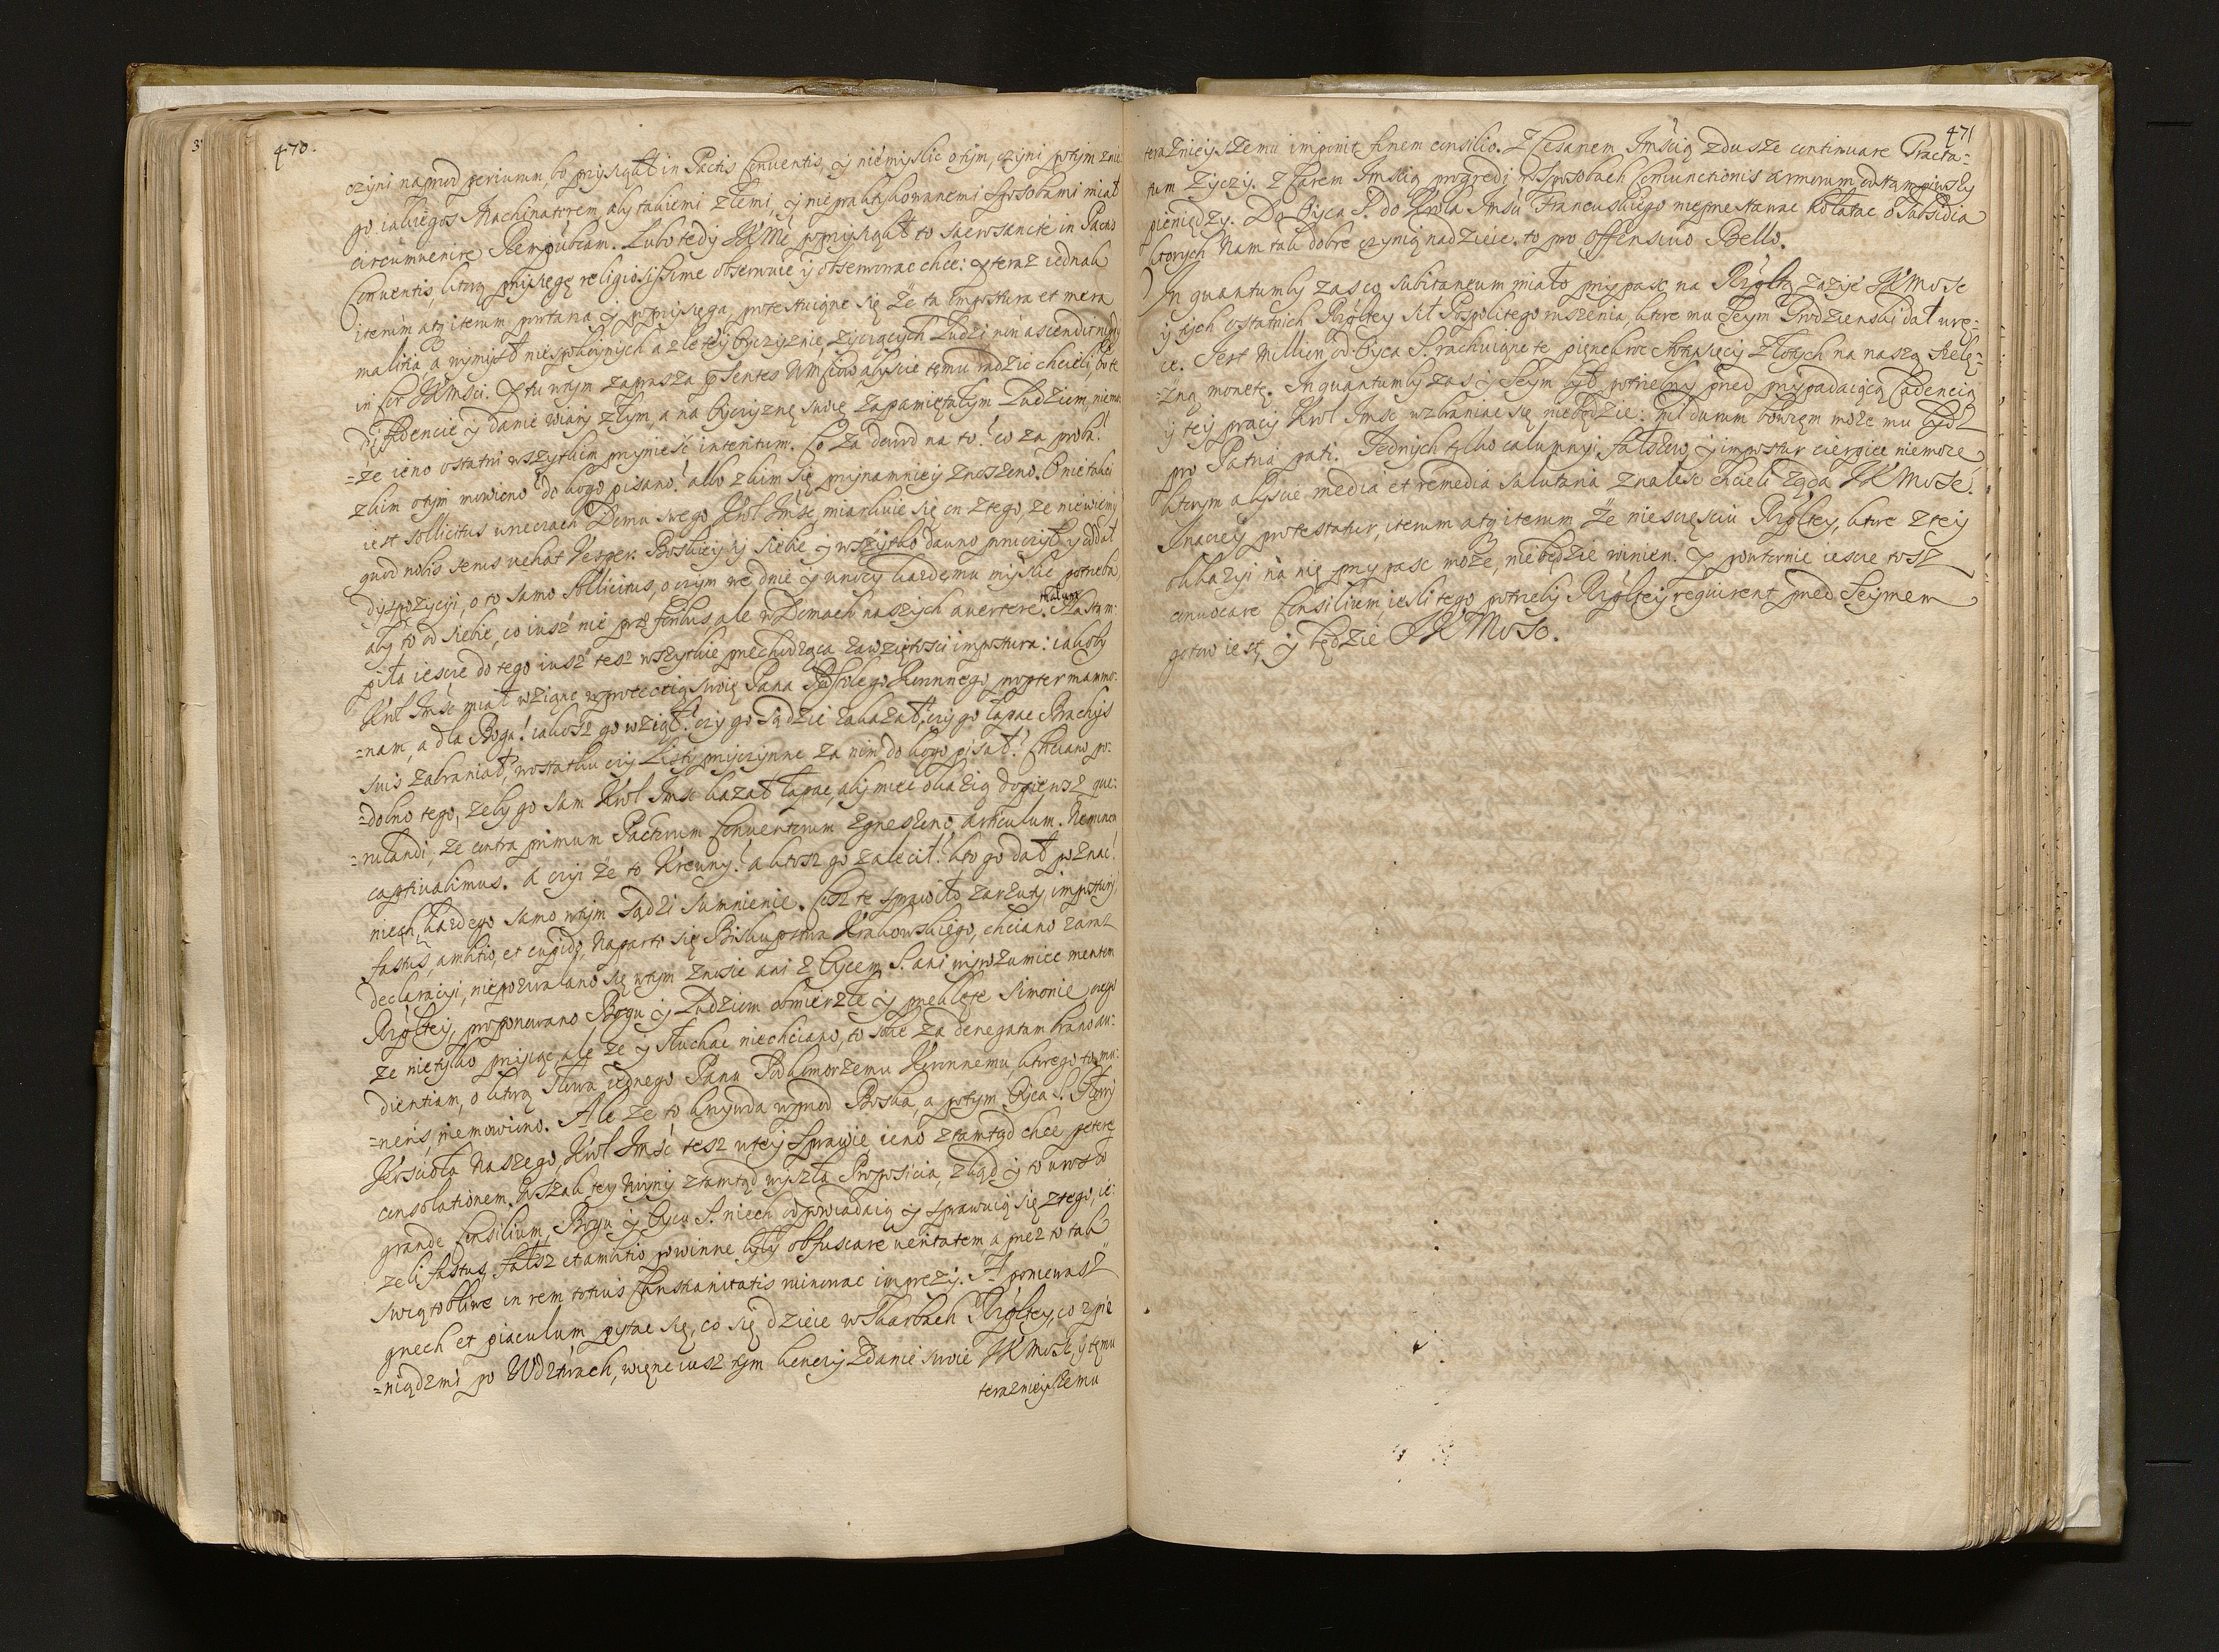 470.
czyni naprzod periurum, bo przysiągł in Pactis Conventis, y niemyslic otym, czyni potym znie:
go iakiegos Machinatorem, aby takiemi zlemi, y niepraktykowanemi sposobami miał
circumvenire Rempublicam. Lubo tedy JKMc poprzysiągł to sacrosancte in Pactis
Conventis, ktorą przysięgę religiosissime obserwuie y obserwowac chce: y teraz iednak
iterum atq iterum powtarza y poprzysięga, protestuiąc się że ta impostura et mera
malitia, a wymysł niespokoynych a zle tey Oyczyznie życzących Ludzi non ascendit nigdy
in Cor JKMsci. Y tu wtym zaprasza pſentes WMciow abyscie temu radzic chcieli, bo te
diffidencie y danie wiary złym, a na Oyczyznę swoię zapamiętałym Ludziom, niemo:
=że ieno ostatni wszytkim przyniesc interitum. Co za dowod na to? co za proba?
z kim otym mowiono? do kogo pisano? albo z kim się przynamniey znoszono. O nietaki
iest sollicitus wrzeczach Domu swego Krol Jmsc, miarkuie się on ztego, że niewiemy
quod nobis serus vehat Vesper. Boskiey y siebie y wszytko dawno poruczył y oddał
dyspozycyi, o to samo sollicitus, o czym we dnie y wnocy każdemu myslic potrzeba,
aby to od siebie, co iusz nie prę foribus ale w Domach naszych avertere malum. Nastąm:
piła ieszcze do tego iusz tesz wszytkie przechodząca zawziętosci impostura: iakoby
Krol Jmsc miał wziąc wprotectią swoię Pana Podskolego Koronnego, propter mammo:
=nam, a dla Boga! iakosz go wziął? czy go sądzic zakazał, czy go łapac Brachijs
suis zabraniał, wostatku czy Listy przyczynne za nim do kogo pisał? Chciano po:
=dobno tego, zeby go sam Krol Jmsc kazał łapac, aby miec okazią dopierosz que:
=rulandi, że contra primum Pactorum Conventorum zgrzeszono articulum. Neminem
captivabimus. A czyi że to Krewny? a ktosz go zalecił? kto go dał poznac?
niech każdego samo wtym sądzi sumnienie. Cosz te sprawiło zarzuty, impostury,
fastus, ambitio, et cupido, naparto się Biskupstwa Krakowskiego, chciano zaraz
declaracyi, niepozwalano się wtym znosic ani z Oycem S. ani wyrozumiec mentem
Rzpltey, proponowano Bogu y Ludziom obmierzłe y przeklęte simonie, czego
że nietylko przyiąc, ale że y słuchac niechciano, to sobie za denegatam brano au:
dientiam, o ktorą słowa iednego Panu Podkomorzemu Koronnemu, ktorego to mu:
=neris, niemowiono. Ale że to krzywda wprzod Boska, a potym Oyca S. Głowy
Koscioła naszego, Krol Jmsc tesz wtey sprawie ieno ztamtąd chce petere
consolationem. Wszak tey Woyny ztamtąd wyszła Propositia, zkąd y to urosło
grande Consilium, Bogu y Oycu S. niech odpowiadaią y sprawuią się ztego, ie:
zeli fastus, fałsz et ambitio powinne były obfuscare veritatem, a przez to tak
swiątobliwe in rem totius Christianitatis ruinowac imprezy. A poniewasz
grzech et piaculum pytac się, co się dzieie w Skarbach Rzpltey, co z pie
=niądzmi po Wdztwach, więnc iusz tym konczy zdanie swoie JKMosc, y temu
teraznieyszemu
471
teraznieyszemu imponit finem consilio. Z Cesarzem Jmscią zdusze continuare Tracta:
tum życzy. z Carem Jmscią progredi w sposobach Coniunctionis armorum, odstąmpiwszy
pieniędzy. Do Oyca S. do Krola Jmsci Francuskiego nieprzestawac kołatac o subsidia
ktorych nam tak dobre czynią nadzieie. to pro offensivo Bello.
In quantumby zas co subitaneum miało przypasc na Rzpltą zażyie JKMosc
y tych ostatnich Rzpltey sił Pospolitego ruszenia, ktore mu Seym Grodzienski dał wrę:
ce. Jest Million od Oyca S. rachuiąc te pięnckroc stotysięcy Złotych na naszą Relę:
żną monetę. Inquantumby zas y Seym był potrzebny przed przypadaiącą Cadencią
y tey pracy Krol Jmsc wzbraniac się niebędzie: Nil durum bowiem może mu bydz
pro Patria pati. Jednych tylko calumny, fałszow, y impostur cierpiec niemoże,
ktorym abyscie media et remedia salutaria znalesc chcieli żąda JKMosc.
Inaczey protestatur, iterum atq iterum że nieszczęsciu Rzpltey, ktore ztey
okkazyi na nię przypasc może, niebędzie winien. Y powtornie ieszcze tosz
convocare Consilium, iesli tego potrzeby Rzpltey requirent przed Seymem
gotow iest, y będzie JKMosc.